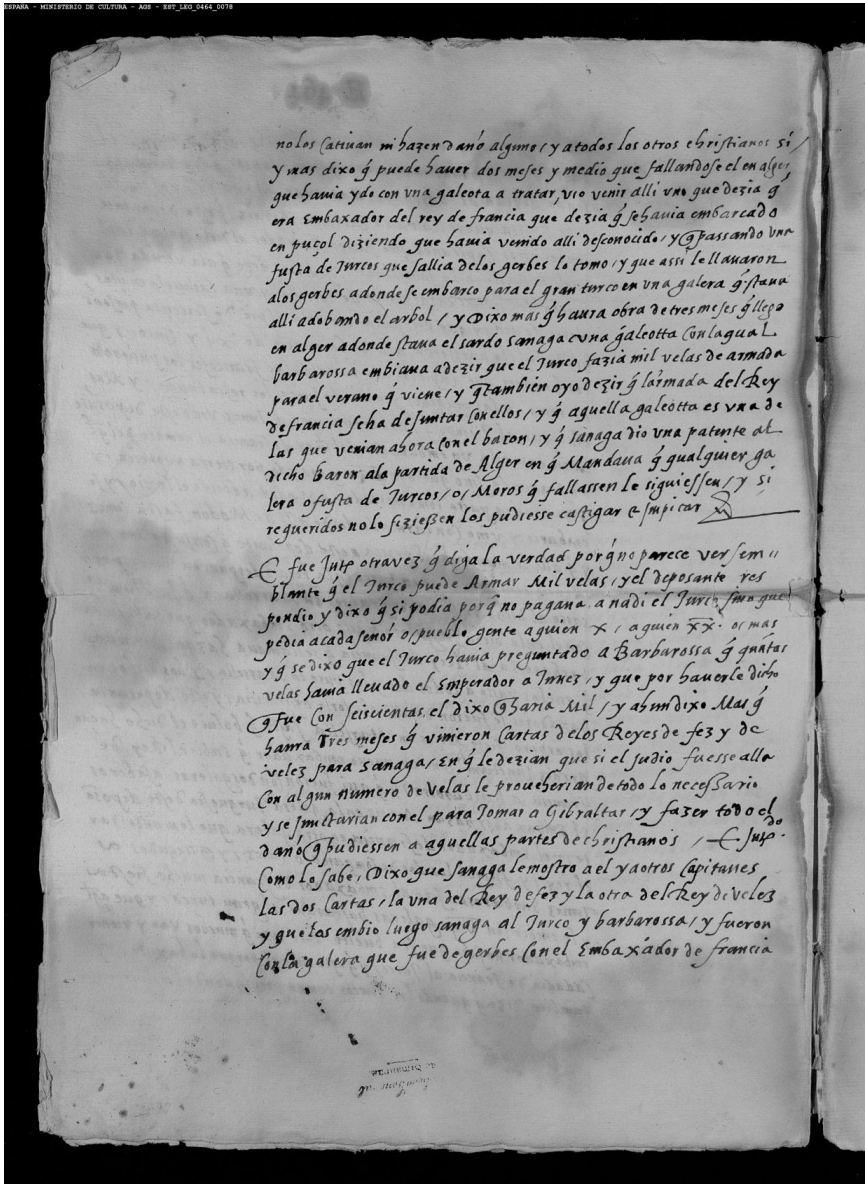 ESPAÑA - MINISTERIO DE CULTURA - AGS - EST_LEG_0464_0078
no los cativan ni hazen daño alguno / y a todos los otros christianos si /
y mas dixo q̃ puede haver dos meses y medio que fallandose el en alger
que havia ydo con una galeota a tratar, vio venir alli uno que dezia q̃
era Embaxador del rey de francia que dezia q̃ se havia embarcado
en puçol diziendo que havia venido alli desconocido / y q̃ passando una
fusta de Turcos que sallia de los gerbes lo tomo / y que assi le llavaron
a los gerbes adonde se embarco para el gran turco en una galera q̃ stava
alli adobando el arbol / y Dixo mas q̃ havra obra de tres meses q̃ llego
en alger adonde stava el sardo sanaga una galeotta con la qual
barbarossa embiava a dezir que el Turco fazia mil velas de armada
para el verano q̃ viene / y q̃ tambien oyo dezir q̃ l'armada del Rey
de francia se ha de juntar con ellos / y q̃ aquella galeotta es una de
las que venian ahora con el baron / y q̃ sanaga dio una patente al
dicho Baron a la partida de Alger en q̃ Mandava q̃ qualquier ga
lera o fusta de Turcos / o / Moros q̃ fallassen le siguiessen / y si
requeridos no lo fizießen los pudiesse castigar & impicar
E fue Intº otra vez q̃ diga la verdad porq̃ no parece ver sem
blante q̃ el Turco puede Armar Mil velas / y el deposante res
pondio y dixo q̃ si podia porq̃ no pagava a nadi el Turco sino que
pedia a cada señor o / pueblo gente a quien x / a quien xx. o / mas
y q̃ se dixo que el Turco havia preguntado a Barbarossa q̃ quãtas
velas havia llevado el Emperador a Tunez / y que por haverle dicho
q̃ fue con seiscientas, el dixo q̃ haria Mil / y ahun dixo Mas q̃
havra Tres meses q̃ vinieron cartas de los Reyes de fez y de
velez para sanaga / en q̃ le dezian que si el judio fuesse alla
con algun numero de velas le proveherian de todo lo neceßario
y se junctarian con el para Tomar a Gibraltar / y fazer todo el
daño q̃ pudiessen a aquellas partes de christianos / E Intdo.
como lo sabe / Dixo que sanaga le mostro a el y a otros Capitanes
las dos Cartas / la una del Rey de fez y la otra del Rey de velez
y que los embio luego sanaga al Turco y barbarossa / y fueron
con la galera que fue de gerbes con el Embaxador de francia